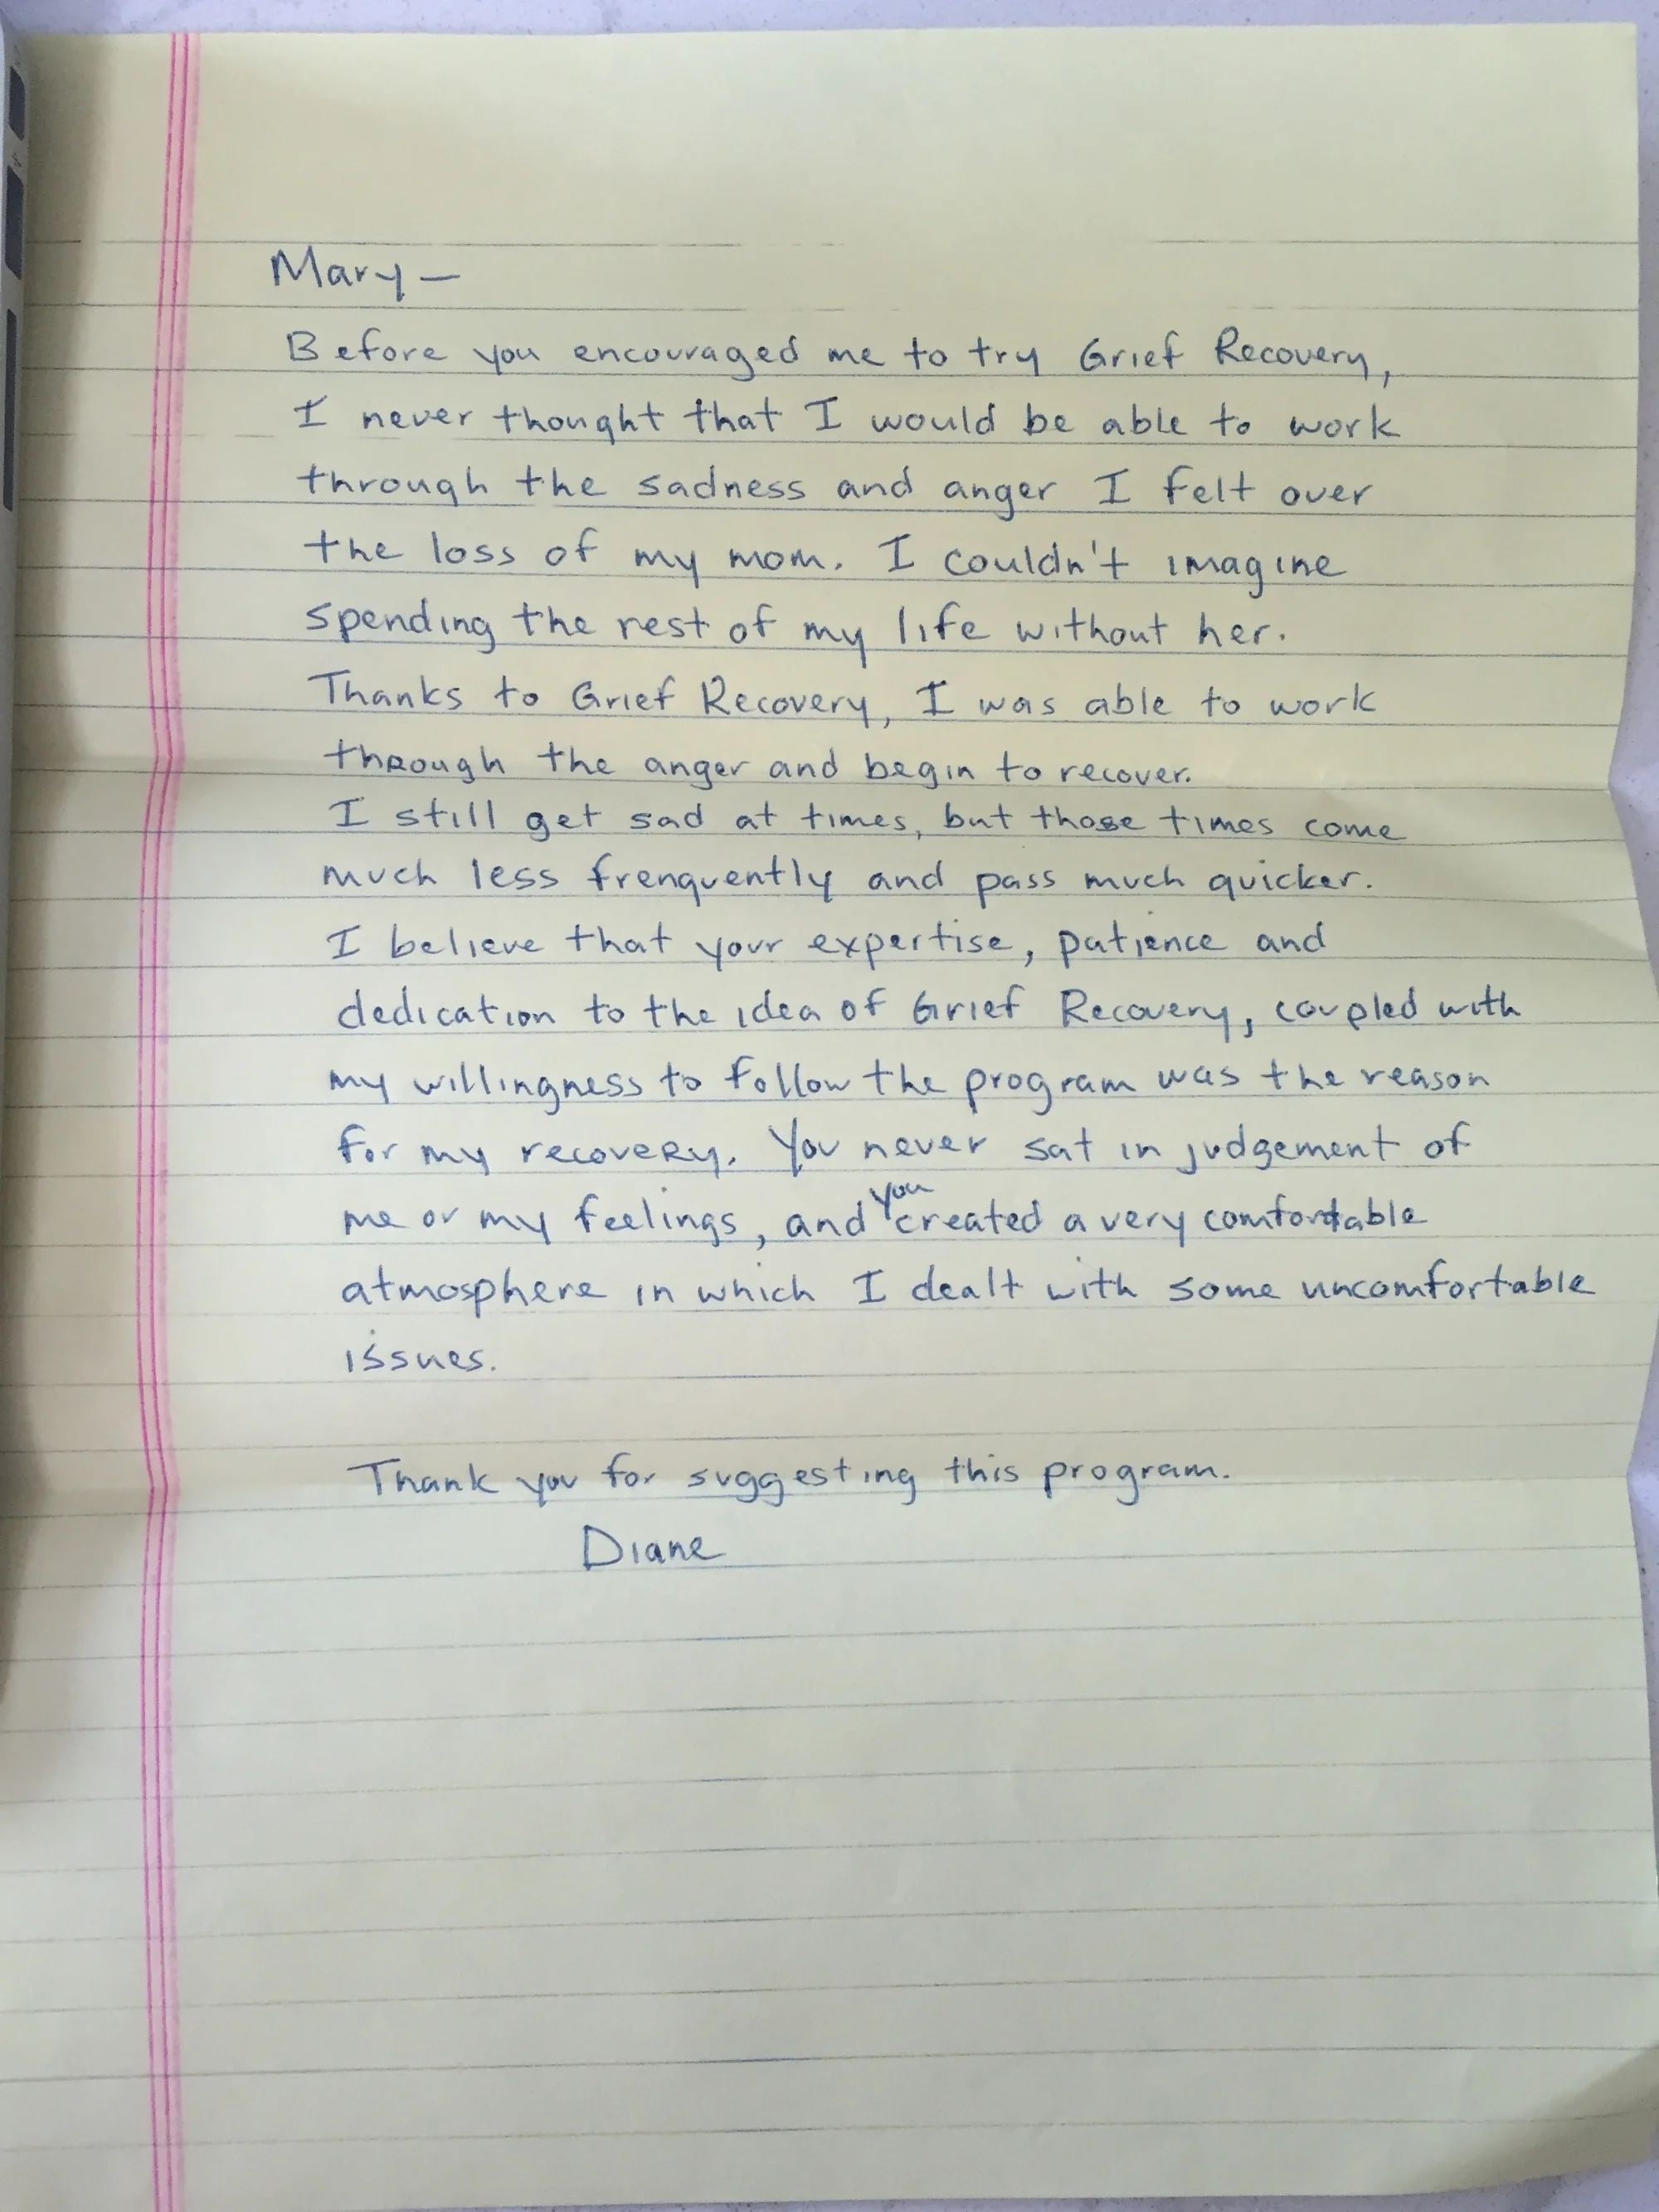 Mary –
Before you encouraged me to try Grief Recovery,
I never thought that I would be able to work
through the sadness and anger I felt over
the loss of my mom. I couldn't imagine
spending the rest of my life without her.
Thanks to Grief Recovery, I was able to work
through the anger and begin to recover.
I still get sad at times, but those times come
much less frenquently and pass much quicker.
I believe that your expertise, patience and
dedication to the idea of Grief Recovery, coupled with
my willingness to follow the program was the reason
for my recovery. You never sat in judgement of
me or my feelings, and you created a very comfortable
atmosphere in which I dealt with some uncomfortable
issues.
Thank you for suggesting this program.
Diane